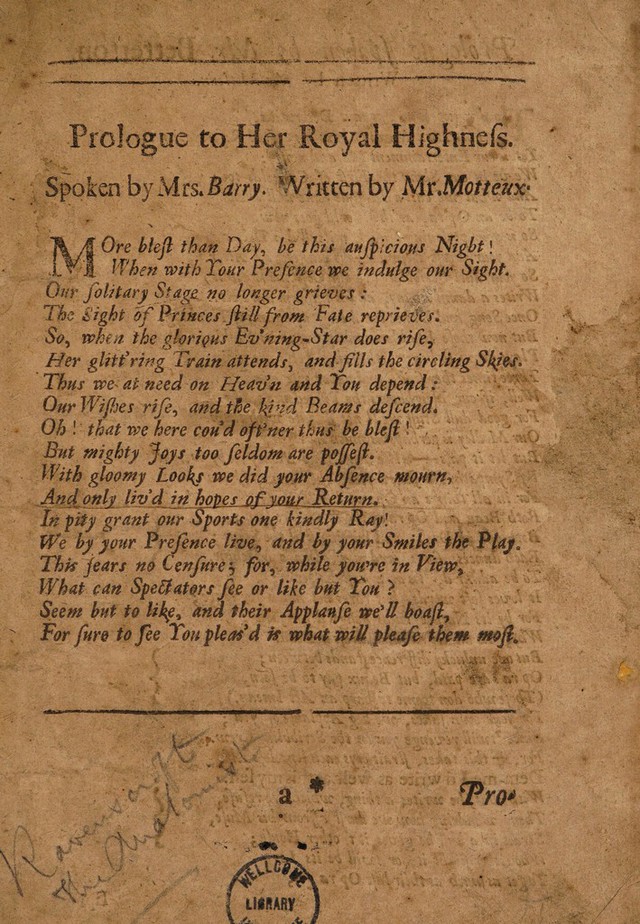 Prologue to Her Royal Highneſs.
Spoken by Mrs. Barry. Written by Mr. Motteux.
MOre bleſt than Day, be this auſpicious Night!
When with Your Preſence we indulge our Sight.
Our ſolitary Stage no longer grieves:
The Sight of Princes ſtill from Fate reprieves.
So, when the glorious Ev'ning-Star does riſe,
Her glitt'ring Train attends, and fills the circling Skies.
Thus we at need on Heav'n and You depend:
Our Wiſhes riſe, and the kind Beams deſcend.
Oh! that we here cou'd oft'ner thus be bleſt!
But mighty Joys too ſeldom are poſſeſt.
With gloomy Looks we did your Abſence mourn,
And only liv'd in hopes of your Return.
In pity grant our Sports one kindly Ray!
We by your Preſence live, and by your Smiles the Play.
This fears no Cenſure; for, while you're in View,
What can Spectators ſee or like but You?
Seem but to like, and their Applauſe we'll boaſt,
For ſure to ſee You pleas'd is what will pleaſe them moſt.
a * Pro-
Ravenscroft
The Anatomist
WELLCOME
LIBRARY